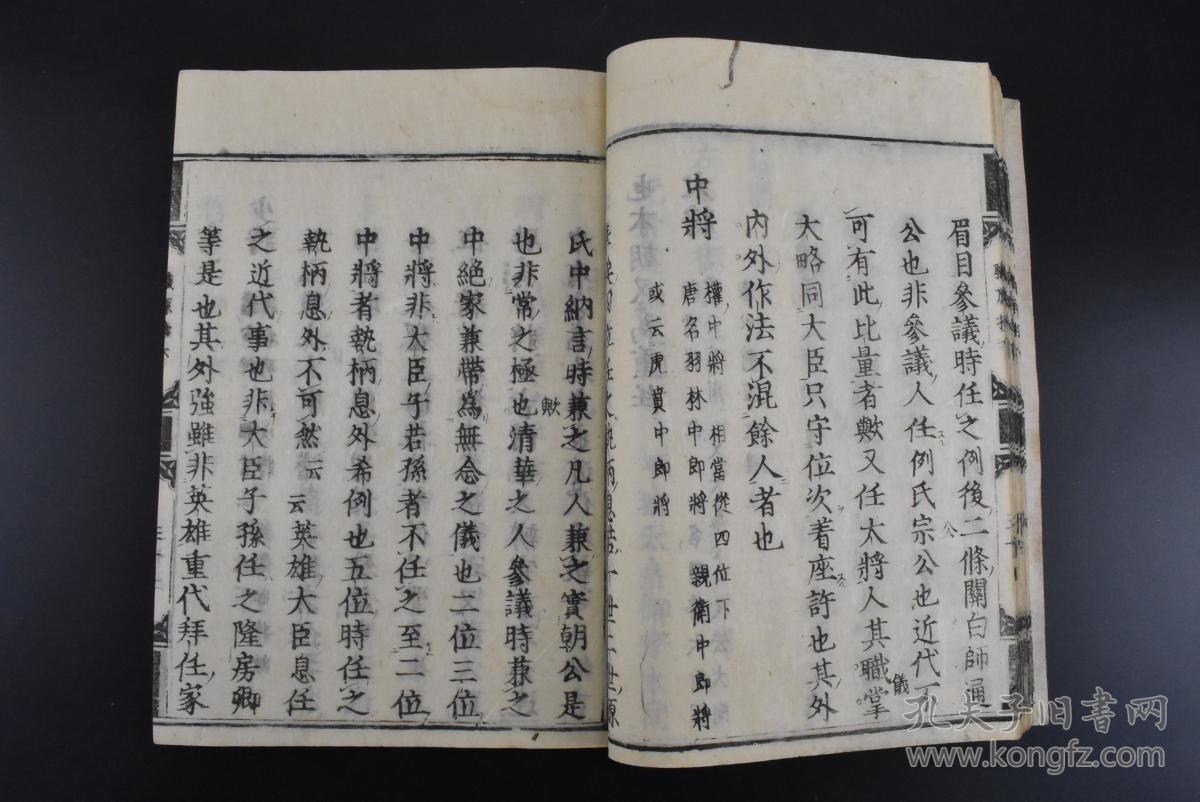 眉目參議時任之例後二條關白師通
公
公也非參議人任例氏宗公也近代
可有此比量者歟又任大將人其職掌
儀
大略同大臣只守位次着座許也其外
内外作法不混餘人者也
中將
權中將 相當從四位下
唐名羽林中郎將 親衛中郎將
或云虎賁中郎將
氏中納言時兼之凡人兼之實朝公是
歟
也非常之極也清華之人參議時兼之
中絶家兼帶爲無念之儀也二位三位
中將非大臣子若孫者不任之至二位
中將者執柄息外希例也五位時任之
執柄息外不可然云云英雄大臣息任
之近代事也非大臣子孫任之隆房卿
等是也其外強雖非英雄重代拜任家
孔夫子旧书网
www.kongfz.com